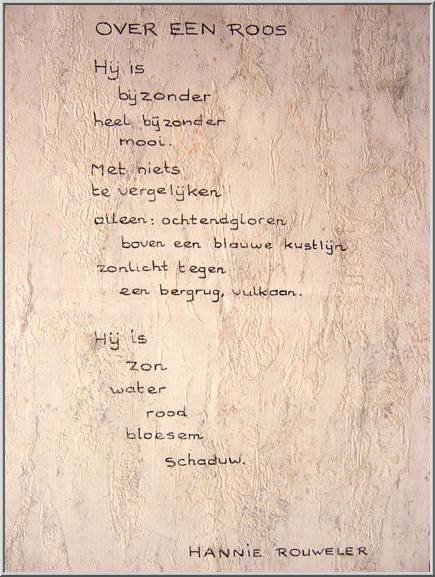 OVER EEN ROOS
Hij is
bijzonder
heel bijzonder
mooi.
Met niets
te vergelijken
alleen: ochtendgloren
boven een blauwe kustlijn
zonlicht tegen
een bergrug, vulkaan.
Hij is
zon
water
rood
bloesem
schaduw.
HANNIE ROUWELER